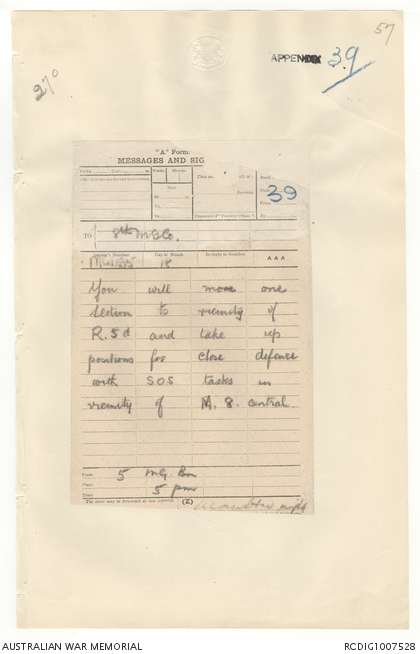 57
APPENDIX 39
270
"A." Form.
MESSAGES AND SIG
39
TO 8th M.G.Co.
Day of Month
18
AAA
You will move one
section to vicinity of
R.5d and take up
positions for close defence
with SOS tasks in
vicinity of M.8. central
From 5 M.G. Bn
Place
Time 5 pm
(Z)
AUSTRALIAN WAR MEMORIAL
RCDIG1007528